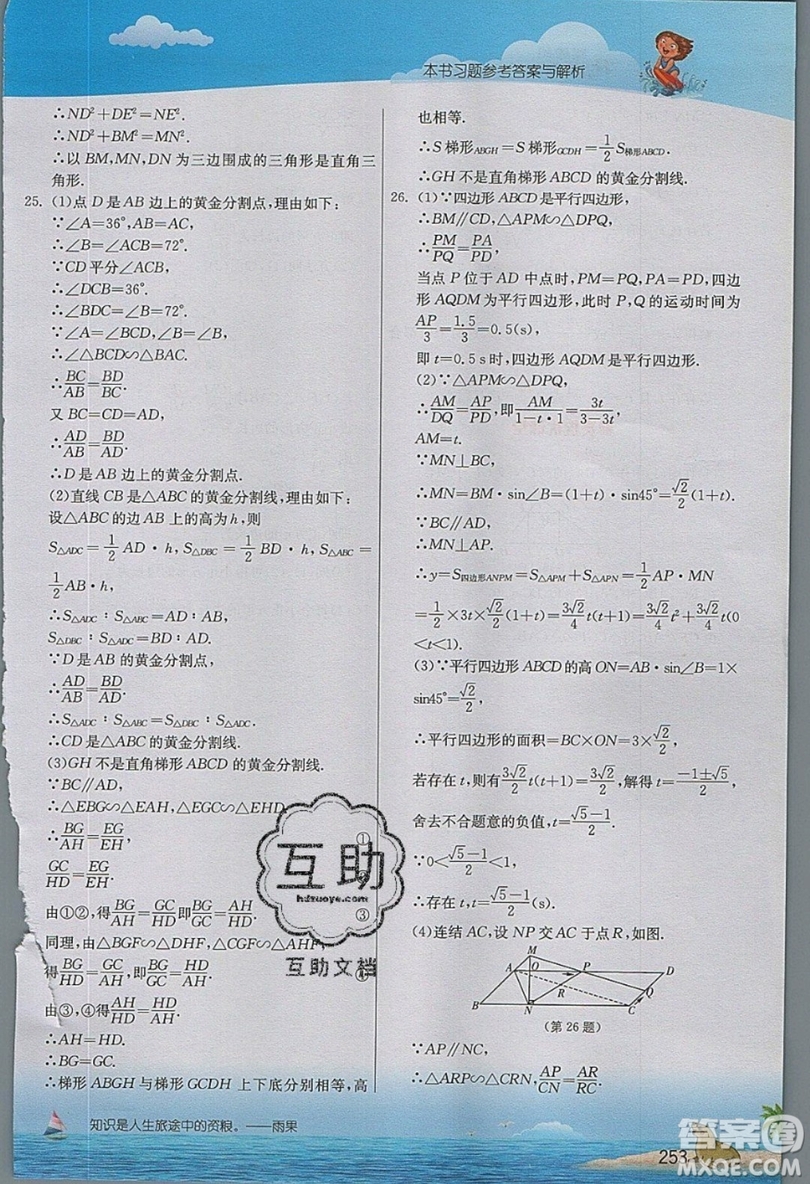 本书习题参考答案与解析
∴ND²+DE²=NE².
∴ND²+BM²=MN².
∴以 BM,MN,DN 为三边围成的三角形是直角三
角形.
25. (1)点 D 是 AB 边上的黄金分割点,理由如下:
∵∠A=36°,AB=AC,
∴∠B=∠ACB=72°.
∵CD 平分∠ACB,
∴∠DCB=36°.
∴∠BDC=∠B=72°.
∵∠A=∠BCD,∠B=∠B,
∴△BCD∽△BAC.
∴BC/AB=BD/BC.
又 BC=CD=AD,
∴AD/AB=BD/AD.
∴D 是 AB 边上的黄金分割点.
(2)直线 CB 是△ABC 的黄金分割线,理由如下:
设△ABC 的边 AB 上的高为 h,则
S△ADC=1/2 AD·h,S△DBC=1/2 BD·h,S△ABC=
1/2 AB·h,
∴S△ADC∶S△ABC=AD∶AB,
S△DBC∶S△ADC=BD∶AD.
∵D 是 AB 的黄金分割点,
∴AD/AB=BD/AD.
∴S△ADC∶S△ABC=S△DBC∶S△ADC.
∴CD 是△ABC 的黄金分割线.
(3)GH 不是直角梯形 ABCD 的黄金分割线.
∵BC∥AD,
∴△EBG∽△EAH,△EGC∽△EHD.
∴BG/AH=EG/EH. ①
GC/HD=EG/EH.
由①②,得BG/AH=GC/HD即BG/GC=AH/HD. ③
同理,由△BGF∽△DHF,△CGF∽△AHF,
得BG/HD=GC/AH,即BG/GC=HD/AH. ④
由③,④得AH/HD=HD/AH.
∴AH=HD.
∴BG=GC.
∴梯形 ABGH 与梯形 GCDH 上下底分别相等,高
也相等.
∴S 梯形ABGH=S 梯形GCDH=1/2 S梯形ABCD.
∴GH 不是直角梯形 ABCD 的黄金分割线.
26. (1)∵四边形 ABCD 是平行四边形,
∴BM∥CD,△APM∽△DPQ,
∴PM/PQ=PA/PD,
当点 P 位于 AD 中点时,PM=PQ,PA=PD,四边
形 AQDM 为平行四边形,此时 P,Q 的运动时间为
AP/3=1.5/3=0.5(s),
即 t=0.5 s时,四边形 AQDM 是平行四边形.
(2)∵△APM∽△DPQ,
∴AM/DQ=AP/PD,即AM/(1-t·1)=3t/(3-3t),
AM=t.
∵MN⊥BC,
∴MN=BM·sin∠B=(1+t)·sin45°=√2/2(1+t).
∵BC∥AD,
∴MN⊥AP.
∴y=S四边形ANPM=S△APM+S△APN=1/2 AP·MN
=1/2×3t×√2/2(1+t)=3√2/4 t(t+1)=3√2/4 t²+3√2/4 t(0
<t<1).
(3)∵平行四边形 ABCD 的高 ON=AB·∠B=1×
sin45°=√2/2,
∴平行四边形的面积=BC×ON=3×√2/2,
若存在 t,则有3√2/2 t(t+1)=3√2/2,解得 t=(-1±√5)/2,
舍去不合题意的负值,t=(√5-1)/2,
∵0<(√5-1)/2<1,
∴存在,t=(√5-1)/2(s).
(4)连结 AC,设 NP 交 AC 于点 R,如图.
M
A O P D
R Q
B N C
(第 26 题)
∵AP∥NC,
∴△ARP∽△CRN,AP/CN=AR/RC.
互助
hdzuoye.com
互助文档
知识是人生旅途中的资粮。——雨果
253
答案圈
MXQE.COM